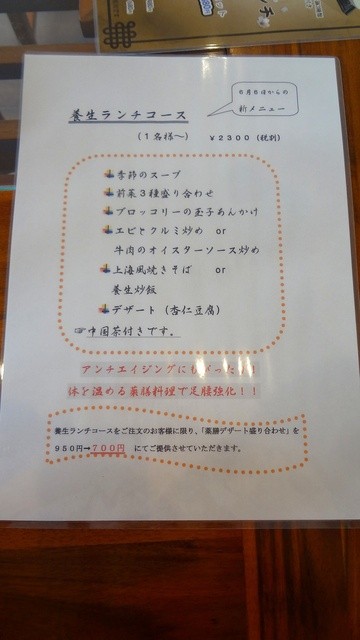 6月6日からの
新メニュー
養生ランチコース
(1名様〜) ¥2300(税別)
季節のスープ
前菜3種盛り合わせ
ブロッコリーの玉子あんかけ
エビとクルミ炒め or
牛肉のオイスターソース炒め
上海風焼きそば or
養生炒飯
デザート(杏仁豆腐)
☞中国茶付きです。
アンチエイジングにも
体を温める薬膳料理で足腰強化!!
養生ランチコースをご注文のお客様に限り、「薬膳デザート盛り合わせ」を
950円→700円 にてご提供させていただきます。